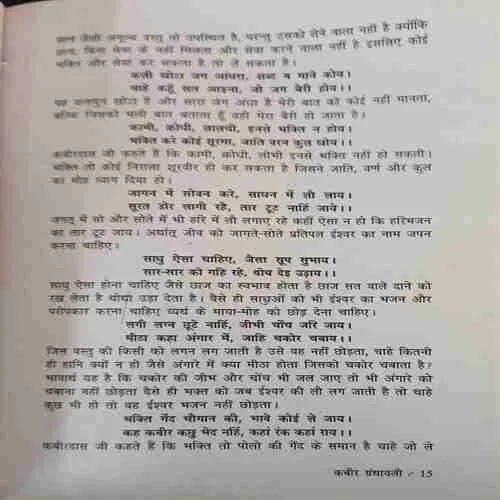 ज्ञान जैसी अमूल्य वस्तु तो उपस्थित है, परन्तु उसको लेने वाला नहीं है क्योंकि
ज्ञान, बिना सेवा के नहीं मिलता और सेवा करने वाला नहीं है इसलिए कोई
भक्ति और सेवा कर सकता है तो ले सकता है।
कली खोटा जग आंधरा, शब्द न माने कोय।
चाहे कहूँ सत आइना, जो जग बैरी होय।।
यह कलयुग खोटा है और सारा जग अंधा है मेरी बात को कोई नहीं मानता,
बल्कि जिसको भली बात बताता हूँ वही मेरा बैरी हो जाता है।
कामी, क्रोधी, लालची, इनसे भक्ति न होय।
भक्ति करे कोई सूरमा, जाति वरन कुल खोय।।
कबीरदास जी कहते हैं कि कामी, क्रोधी, लोभी इनसे भक्ति नहीं हो सकती।
भक्ति तो कोई निराला शूरवीर ही कर सकता है जिसने जाति, वर्ण और कुल
का मोह त्याग दिया हो।
जागन में सोवन करे, साधन में लौ लाय।
सूरत डोर लागी रहे, तार टूट नाहिं जाये।।
जगत् में सो और सोते में भी हरि में लौ लगाए रहे कहीं ऐसा न हो कि हरिभजन
का तार टूट जाय। अर्थात् जीव को जागते-सोते प्रतिपल ईश्वर का नाम जपन
करना चाहिए।
साधु ऐसा चाहिए, जैसा सूप सुभाय।
सार-सार को गहि रहे, थोथ देइ उड़ाय।।
साधु ऐसा होना चाहिए जैसे छाज का स्वभाव होता है छाज सत वाले दाने को
रख लेता है थोथा उड़ा देता है। वैसे ही साधुओं को भी ईश्वर का भजन और
परोपकार करना चाहिए व्यर्थ के माया-मोह को छोड़ देना चाहिए।
लगी लग्न छूटे नाहिं, जीभी चोंच जरि जाय।
मीठा कहा अंगार में, जाहि चकोर चबाय।।
जिस वस्तु की किसी को लगन लग जाती है उसे वह नहीं छोड़ता, चाहे कितनी
ही हानि क्यों न हो जैसे अंगारे में क्या मीठा होता जिसको चकोर चबाता है?
भावार्थ यह है कि चकोर की जीभ और चोंच भी जल जाए तो भी अंगारे को
चबाना नहीं छोड़ता वैसे ही भक्त को जब ईश्वर की लौ लग जाती है तो चाहे
कुछ भी हो तो वह ईश्वर भजन नहीं छोड़ता।
भक्ति गेंद चौगान की, भावे कोई ले जाय।
कह कबीर कछु भेद नहिं, कहां रंक कहां राय।।
कबीरदास जी कहते हैं कि भक्ति तो पोलो की गेंद के समान है चाहे जो ले
कबीर ग्रंथावली / 15